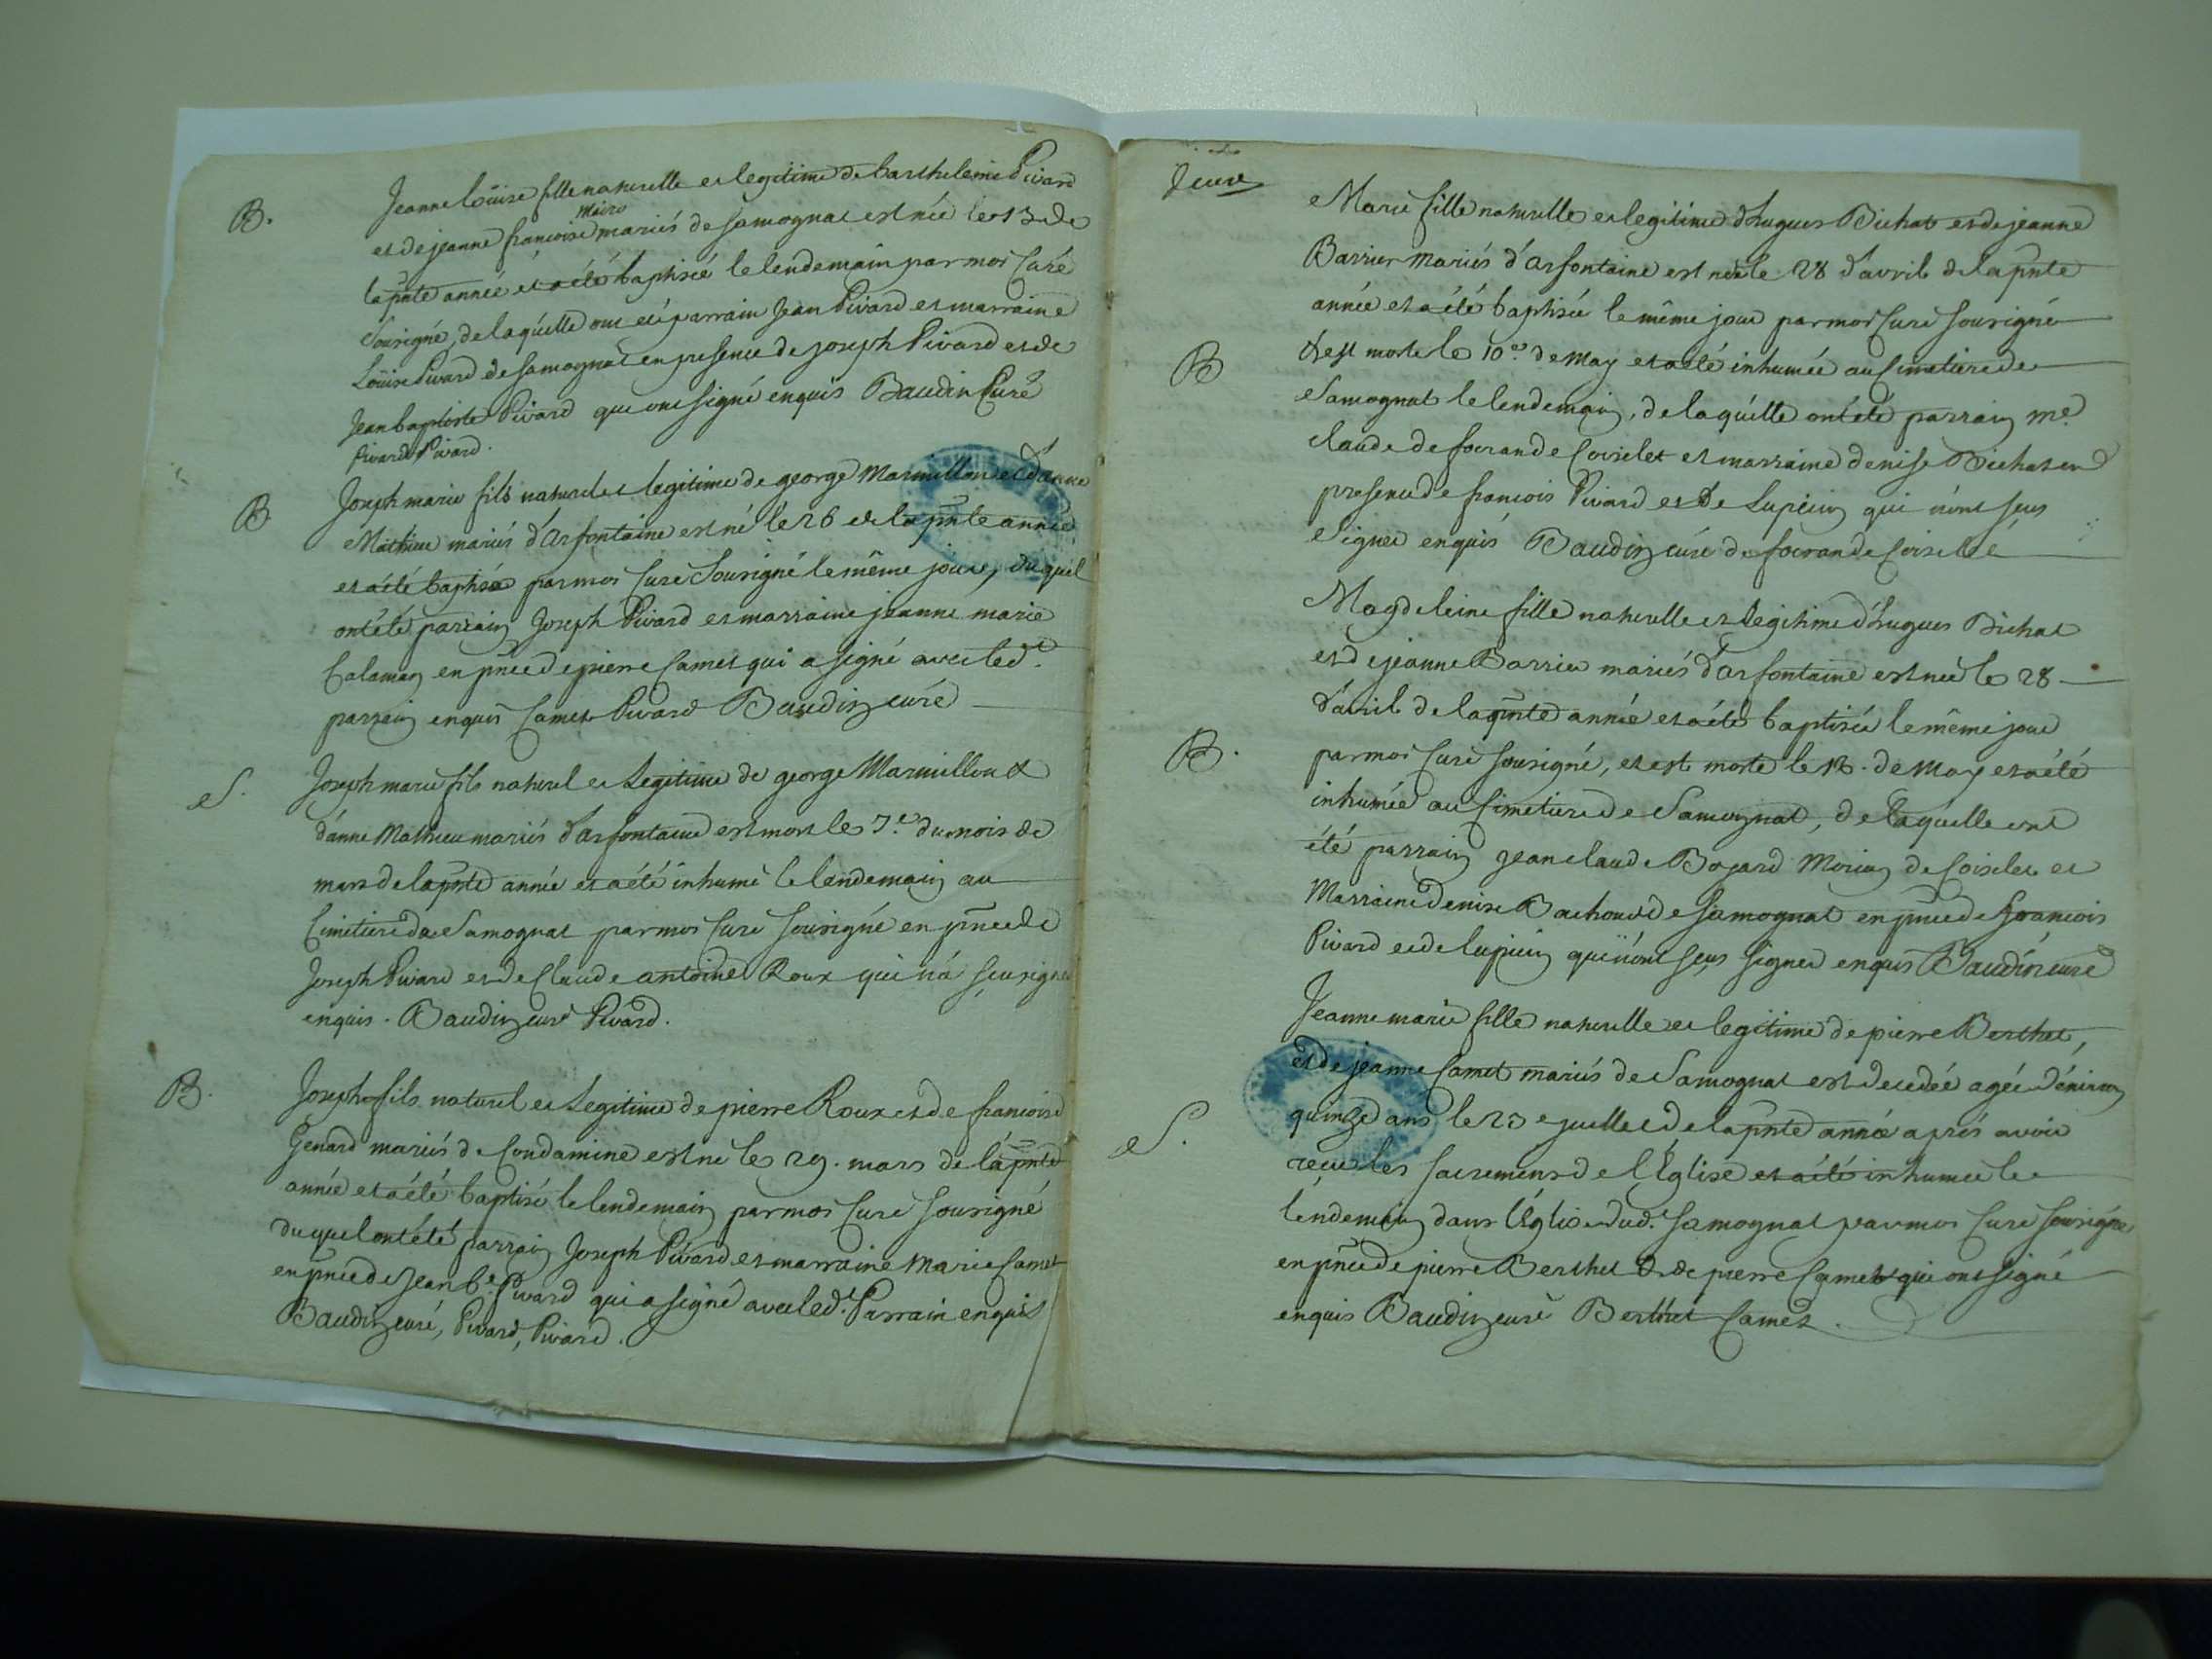 B.
Jeanne loüise fille naturelle et legitime de barthelemie Pivard
et de jeanne francoise maire mariés de samognat est née le 13 de
la pnte année et a été baptisée le lendemain par moi Curé
Sousigné, de laquelle ont été parrain Jean Pivard et marraine
Loüise Pivard de samognat en presence de joseph Pivard et de
Jean baptiste Pivard qui ont signé enquis Baudin Curé
Pivard Pivard.
B
Joseph marie fils naturel et legitime de george Marmillon et d'anne
Mathieu mariés d'arfontaine est né le 26 de la pnte année
et a été baptisé par moi Curé Sousigné le même jour, duquel
ont été parrain Joseph Pivard et marraine jeanne marie
Calaman en pnce de pierre Camet qui a signé avec led.t
parrain enquis Camet Pivard Baudin curé
S.
Joseph marie fils naturel et Legitime de george Marmillon &
d'anne Mathieu mariés d'arfontaine est mort le 7.e du mois de
mars de la pnte année et a été inhumé le lendemain au
Cimetiere de Samognat par moi Curé sousigné en pnce de
Joseph Pivard et de Claude antoine Roux qui n'a sçeu signer
enquis. Baudin curé Pivard.
B.
Joseph fils naturel et Legitime de pierre Roux et de francoise
Genard mariés de Condamine est né le 29. mars de la pnte
année et a été baptisé le lendemain par moi Curé sousigné
duquel ont été parrain Joseph Pivard et marraine Marie Camet
en pnce de Jean b.te Pivard qui a signé avec led.t Parrain enquis
Baudin curé, Pivard, Pivard.
Marie fille naturelle et legitime d'hugues Bichat et de jeanne
Barrier mariés d'arfontaine est née le 28 d'avril de la pnte
année et a été baptisée le même jour par moi Curé sousigné
B
& est morte le 10.e de May et a été inhumée au Cimetiere de
Samognat le lendemain, de laquelle ont été parrain m.e
claude de Coiselet et marraine denise Bichat en
presence de francois Pivard et de Lupicin qui n'ont sçus
Signer enquis Baudin curé
Magdeleine fille naturelle et legitime d'hugues Bichat
et de jeanne Barrier mariés d'arfontaine est née le 28
d'avril de la pnte année et a été baptisée le même jour
B.
par moi Curé sousigné, et est morte le 12. de May et a été
inhumée au Cimetiere de Samognat, de laquelle ont
été parrain jean claude Bogard Morin de Coiselet et
Marraine denise Bachoud de samognat en pnce de francois
Pivard et de lupicin qui n'ont sçus signer enquis Baudin curé
Jeanne marie fille naturelle et legitime de pierre Berthet,
et de jeanne Camet mariés de Samognat est decedée agée d'environ
S.
quinze ans le 23 juillet de la pnte année aprés avoir
reçu les sacremens de l'Église et a été inhumée le
lendemain dans l'Église dud.t samognat par moi Curé sousigné
en pnce de pierre Berthet & de pierre Camet qui ont signé
enquis Baudin curé Berthet Camet.